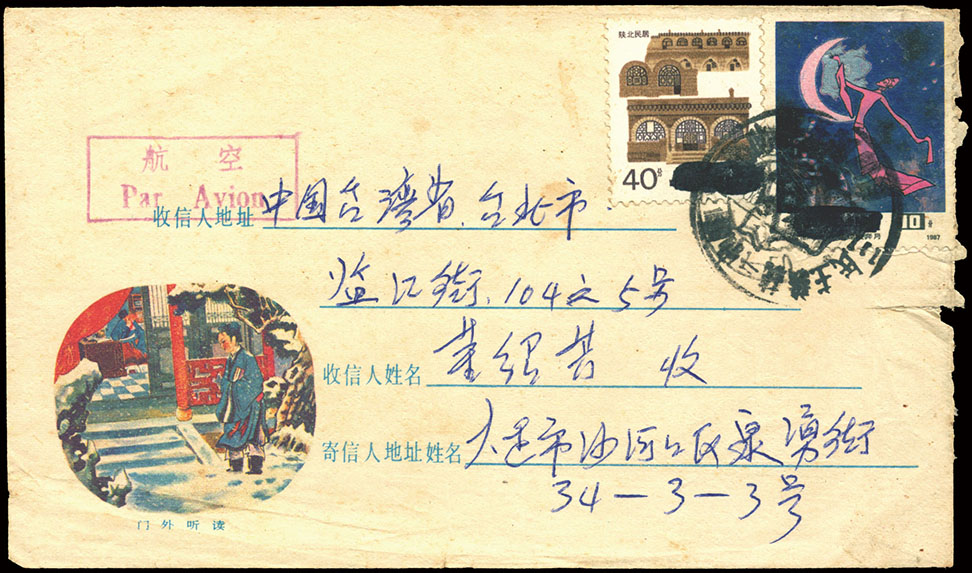 陕北民居
40分
10分
1987
航 空
Par Avion
收信人地址 中国台湾省、台北市.
临江街、104之5号
收信人姓名 收
寄信人地址姓名 大连市沙河口区泉涌街
34-3-3号
门外听读